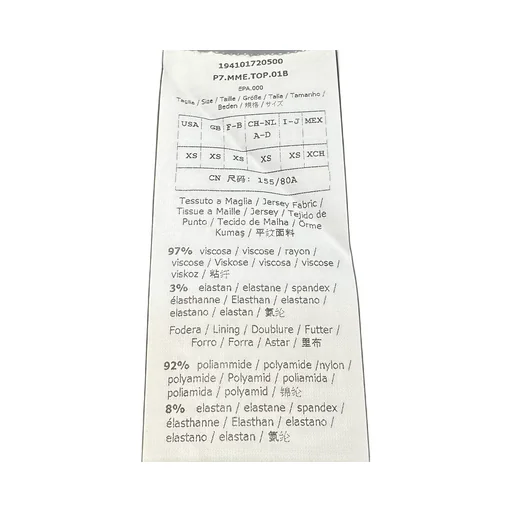 194101720500
P7.MME.TOP.01B
EPA.000
Taglia / Size / Taille / Größe / Talla / Tamanho /
Beden / 规格 / サイズ
USA GB F-B CH-NL I-J MEX
A-D
XS XS XS XS XS XCH
CN 尺码: 155/80A
Tessuto a Maglia / Jersey Fabric /
Tissue a Maille / Jersey / Tejido de
Punto / Tecido de Malha / Örme
Kumaş / 平纹面料
97% viscosa / viscose / rayon /
viscose / Viskose / viscosa / viscose /
viskoz / 粘纤
3% elastan / elastane / spandex /
élasthanne / Elasthan / elastano /
elastano / elastan / 氨纶
Fodera / Lining / Doublure / Futter /
Forro / Forra / Astar / 里布
92% poliammide / polyamide /nylon /
polyamide / Polyamid / poliamida /
poliamida / polyamid / 锦纶
8% elastan / elastane / spandex /
élasthanne / Elasthan / elastano /
elastano / elastan / 氨纶